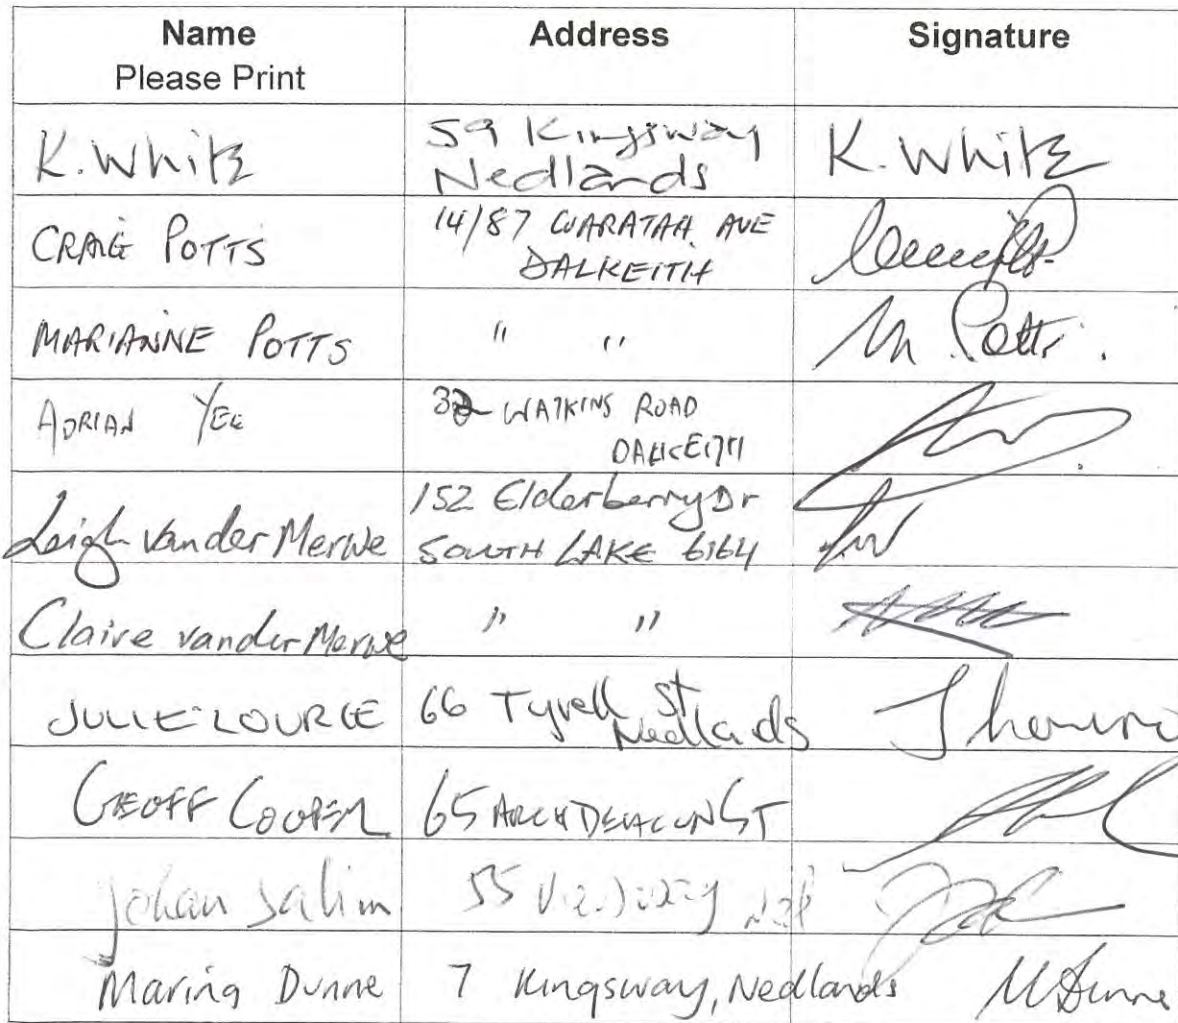 Name Address Signature
Please Print
K. White 59 Kingsway K. White
Nedlands
CRAIG POTTS 14/87 WARATAH AVE
DALKEITH
MARIANNE POTTS " " M. Potts.
ADRIAN YEE 32 WATKINS ROAD
DALKEITH
Leigh van der Merwe 152 Elderberry Dr
SOUTH LAKE 6164
Claire van der Merwe " "
JULIE 66 Tyrell St
Nedlands
GEOFF COOPER 65 ARCHDEACON ST
Johan Salim 55
Marina Dunne 7 Kingsway, Nedlands M Dunne